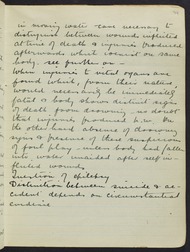 in many cases necessary to
distinguish between wounds inflicted
at time of death & injuries produced
afterwards which coexist on same
body. see further on -
When injuries to vital organs are
found which, from their nature,
would necessarily be immediately
fatal & body shows distinct signs
of death from drowning, no doubt
that injuries produced p.m. On
the other hand absence of drowning
signs & presence of these suspicion
of foul play - unless body had fallen
into water unaided after self in-
flicted wounds.
Question of epilepsy
Distinction between suicide & ac-
cident depends on circumstantial
evidence